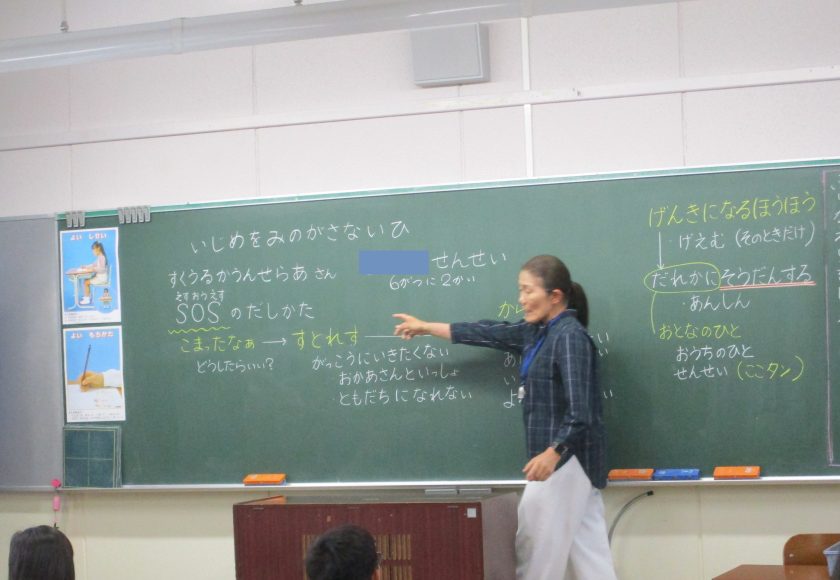 よい しせい
よい もちかた
いじめをみのがさないひ
すくうるかうんせらあ さん
せんせい
6がつに2かい
えすおうえす
SOSのだしかた
こまったなぁ → すとれす
どうしたらいい?
がっこうにいきたくない
おかあさんといっしょ
・ともだちになれない
から
あ
い
よ
げんきになるほうほう
・げえむ (そのときだけ)
だれかにそうだんする
・あんしん
おとなのひと
おうちのひと
せんせい (ここタン)